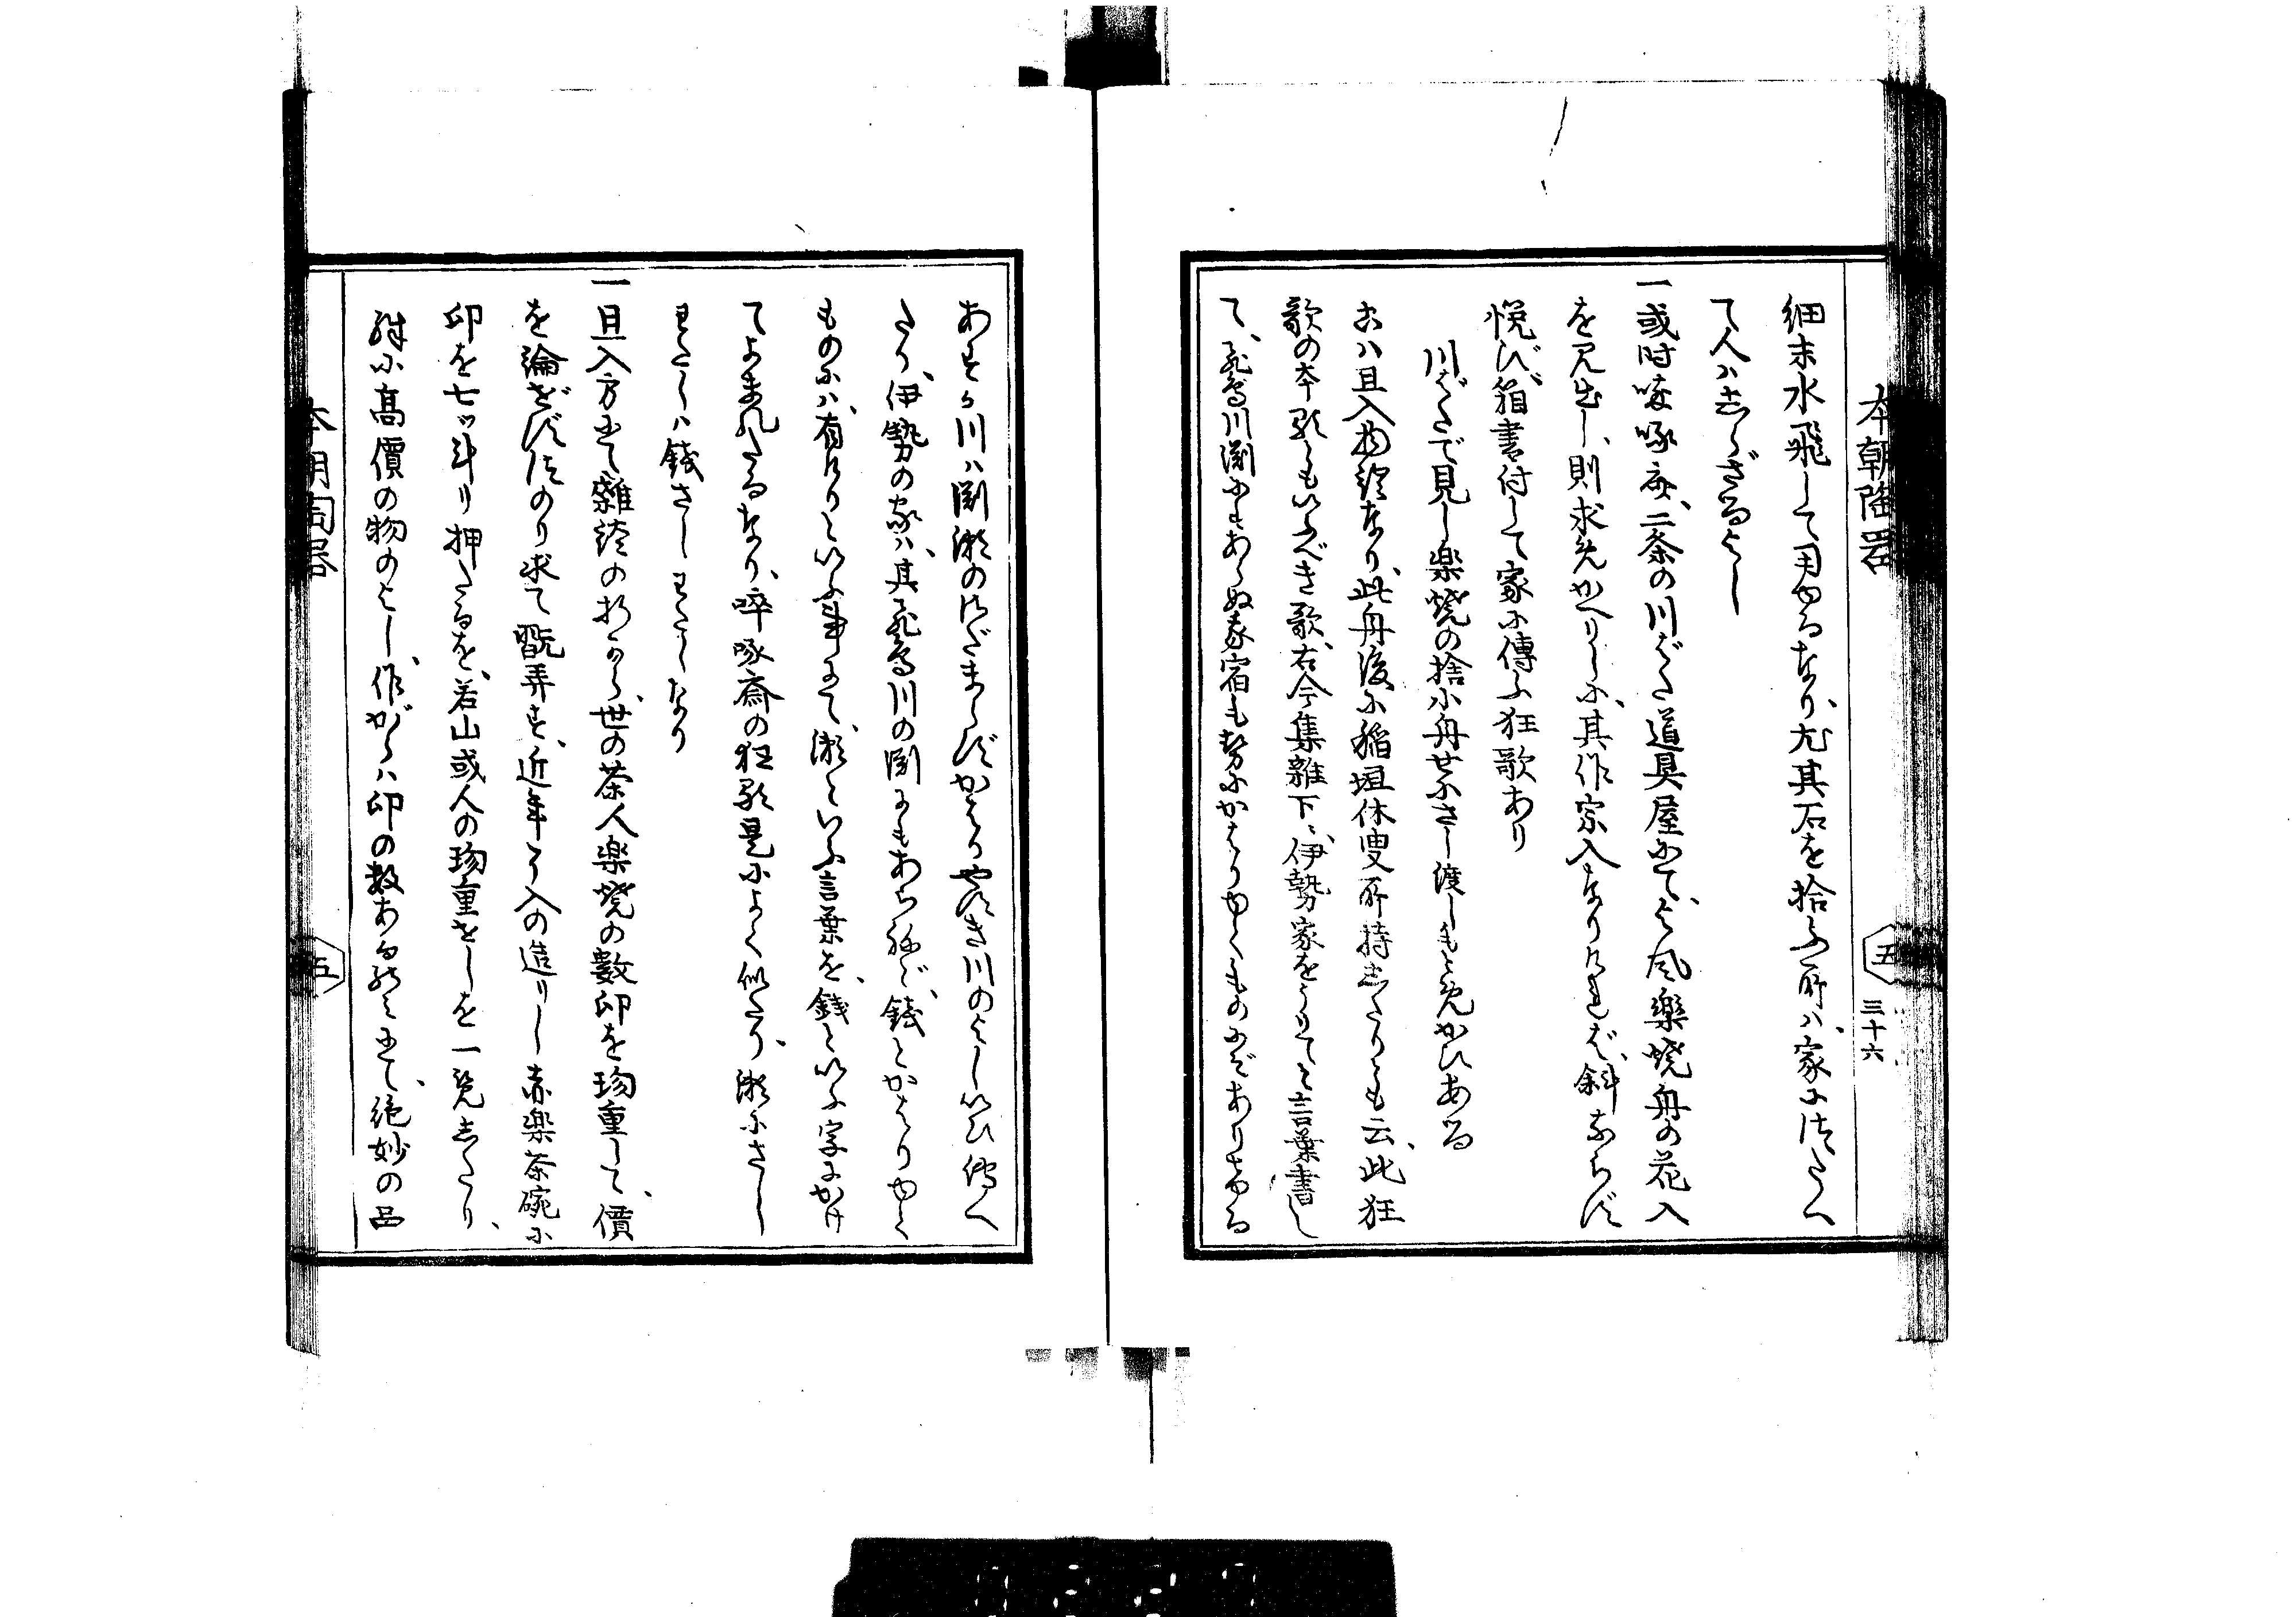 本朝陶器
五
三十六
細末水飛して用ゆるなり、尤其石を拾ふ所ハ、家につたへ
て人ハしらざるよし
一或時啐啄斎、二条の川ばた道具屋にて、よき楽焼舟の花入
を見出し、則求めかへりしに、其作宗入なりけれバ、斜ならず
悦び、箱書付して家に傳ふ狂歌あり
川ばたで見し楽焼の捨小舟せにさし渡しもとめかひある
右ハ旦入物語なり、此舟後に稲垣休叟所持したりとも云、此狂
歌の本歌ともいふべき歌、古今集雑下ニ、伊勢家をうりてと言葉書し
て、飛鳥川渕にもあらぬ我宿もせにかはりゆくものにぞありける
あすか川ハ渕瀬のさだまらずかはりやすき川のよしいひ傳へ
たり、伊勢の家ハ、其飛鳥川の渕にもあらねど、銭とかはりゆく
ものにハ有けりといふ事にて、瀬といふ言葉を、銭といふ字にかけ
てよまれたるなり、啐啄斎の狂歌是によく似たり、瀬にさし
わたしハ銭さしわたしなり
一旦入方にて雑談の折から、世の茶人楽焼の數印を珍重して、價
を論ぜずほのり求て翫弄す、近年了入の造りし赤楽茶碗に
印を七ッ斗り押たるを、若山或人の珍重せしを一覧したり、
殊に高價の物のよし、作がらハ印の数あるのミにて、絶妙の品
本朝陶器
五